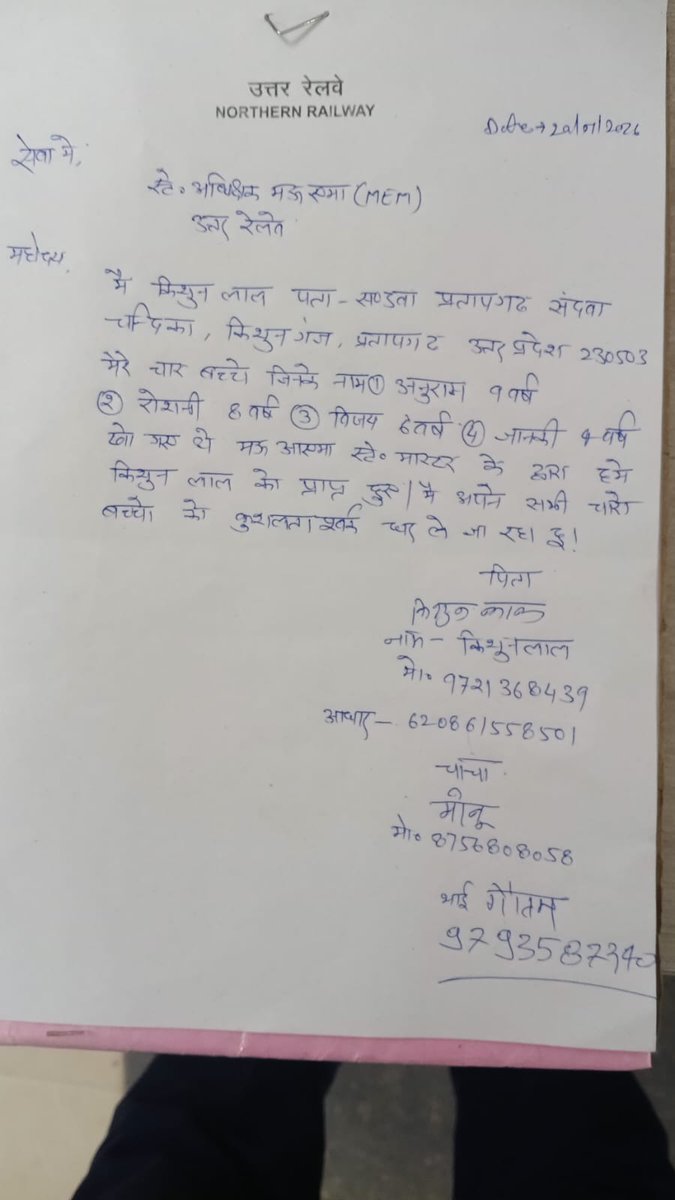 उत्तर रेलवे
NORTHERN RAILWAY
Date → 20/01/2026
सेवा में,
स्टे॰ अधिक्षक मऊ एमा (MEM)
उत्तर रेलवे
महोदय,
मै किथुन लाल पता - सण्डवा प्रतापगढ संदवा
चन्द्रिका, किथुन गंज, प्रतापगढ उत्तर प्रदेश 230503
मेरे चार बच्चे जिनके नाम ① अनुराम 9 वर्ष
② रोशनी 8 वर्ष ③ विजय 6 वर्ष ④ जानकी 4 वर्ष
खो गए थे मऊ आएमा स्टे॰ मास्टर के द्वारा हमे
किथुन लाल को प्राप्त हुए। मै अपने सभी चारो
बच्चो को कुशलता पूर्वक घर ले जा रहा हू।
पिता
नाम - किथुनलाल
मो॰ 9721368439
आधार - 620861558501
चाचा
मोनू
मो॰ 8756808058
भाई गौतम
9793587340